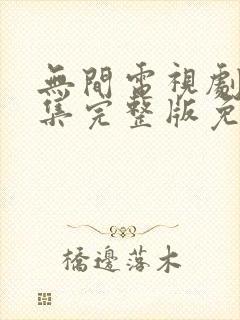 無間電視劇
集完整版免
橋邊落木